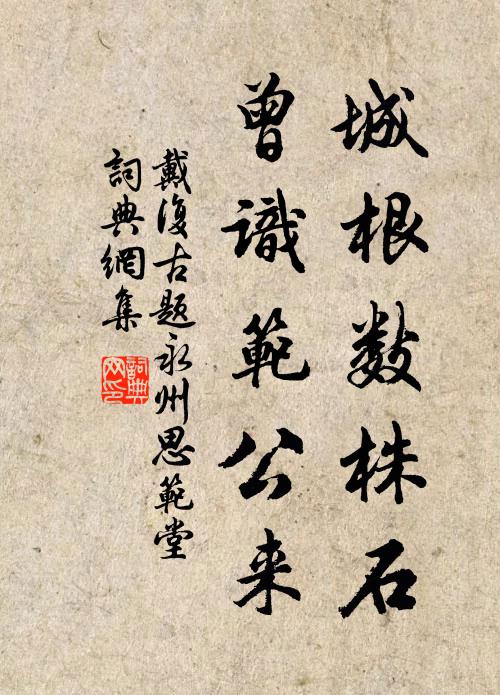 城根数株石
曾識範公来
戴復古题永州思範堂
詞典網集
詞典
网印